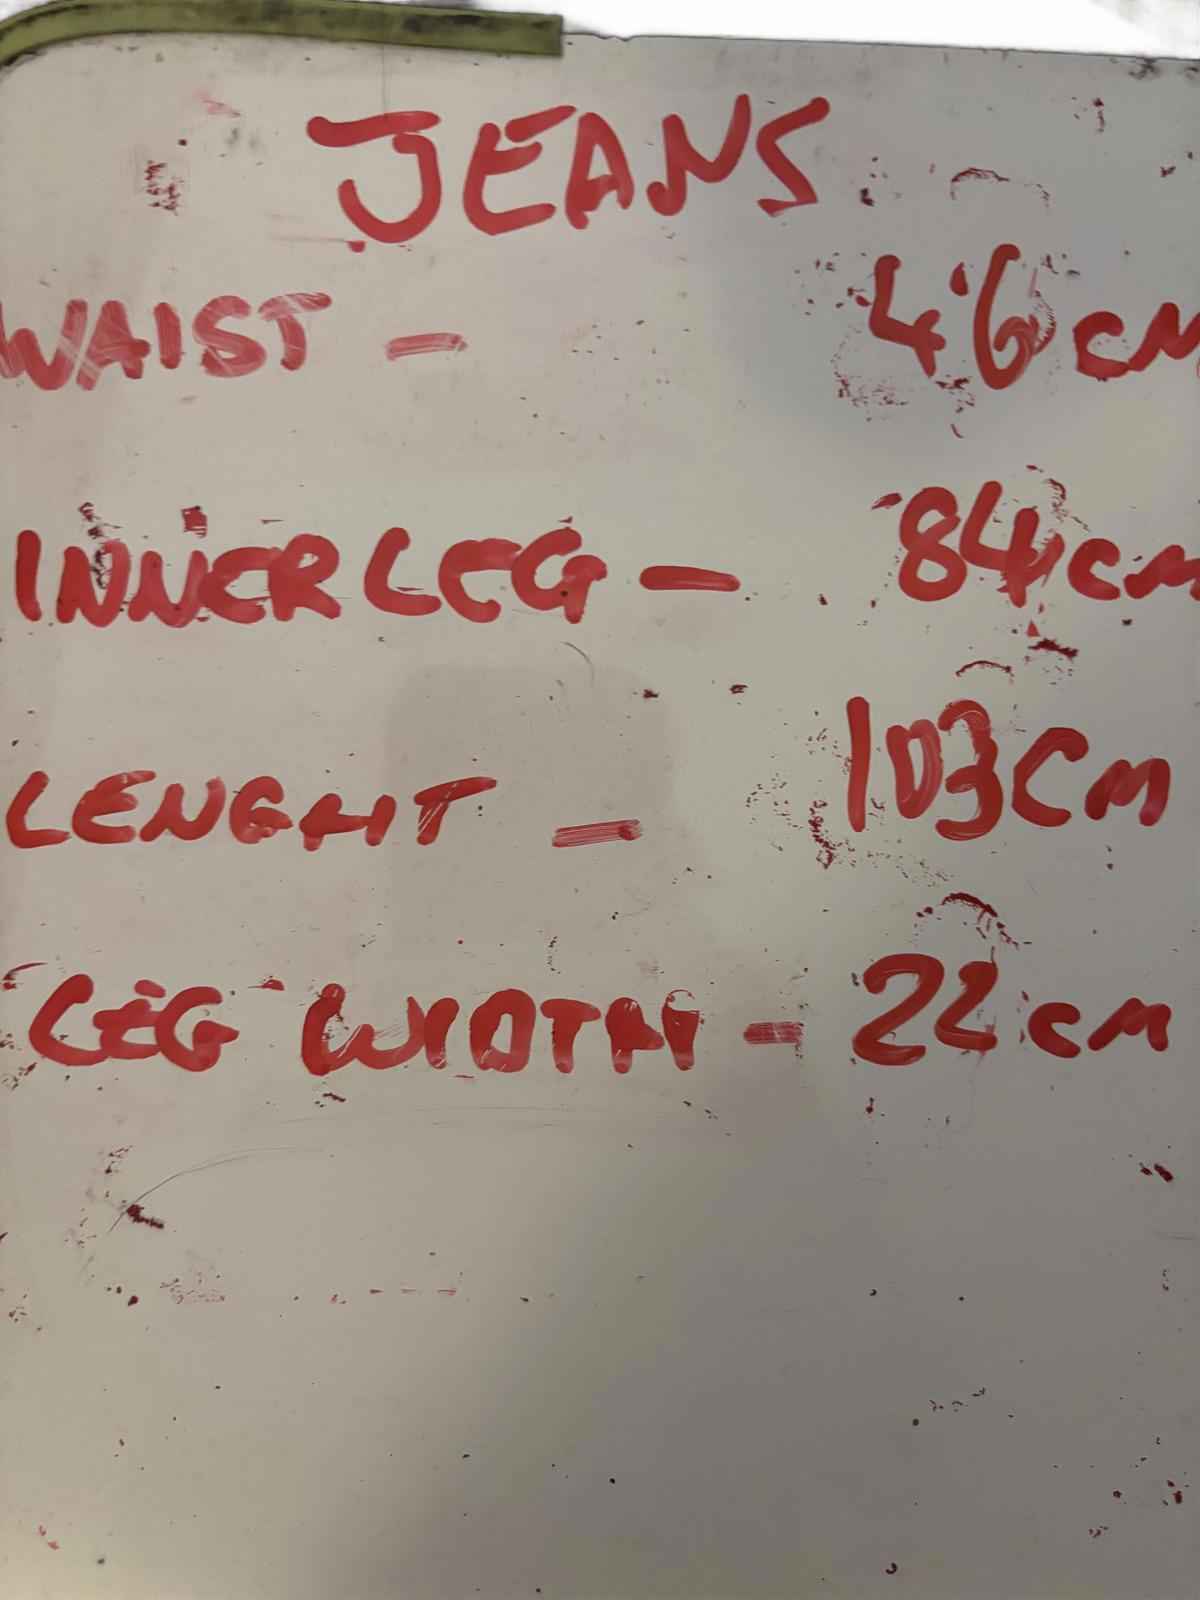 JEANS
WAIST - 46cm
INNER LEG - 84cm
LENGHT - 103cm
LEG WIDTH - 22cm